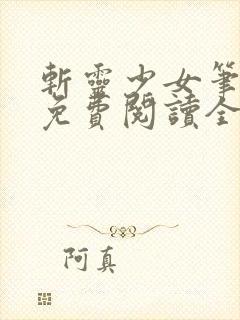 斬靈少女筆
免費閱讀全
阿真